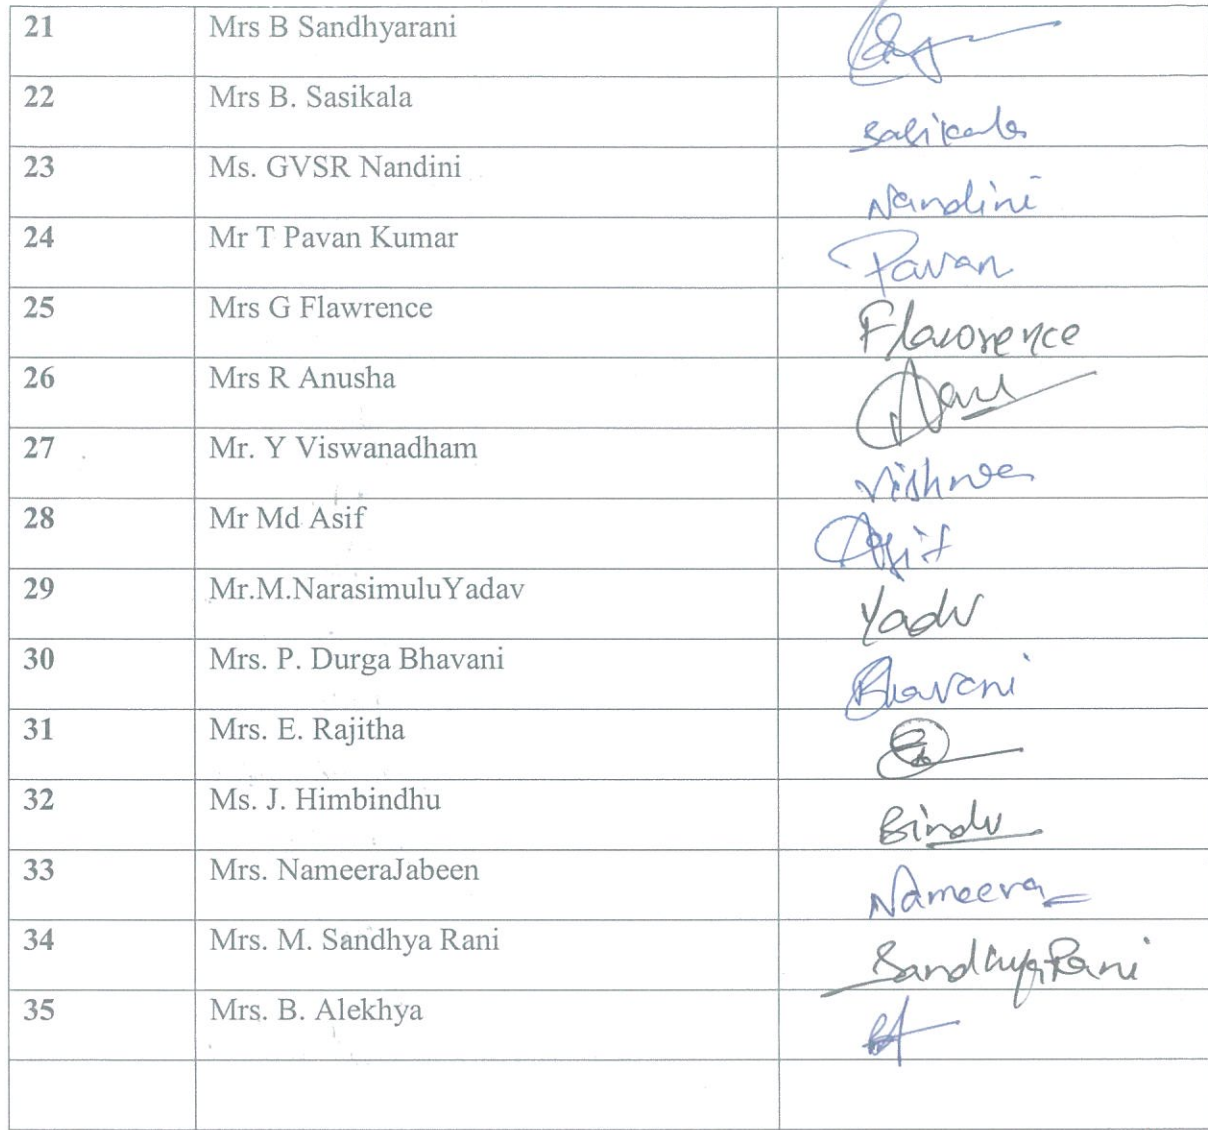 21 Mrs B Sandhyarani
22 Mrs B. Sasikala Sasikala
23 Ms. GVSR Nandini Nandini
24 Mr T Pavan Kumar Pavan
25 Mrs G Flawrence Flawrence
26 Mrs R Anusha
27 Mr. Y Viswanadham
28 Mr Md Asif Asif
29 Mr.M.NarasimuluYadav
30 Mrs. P. Durga Bhavani Bhavani
31 Mrs. E. Rajitha
32 Ms. J. Himbindhu Bindu
33 Mrs. NameeraJabeen Nameera
34 Mrs. M. Sandhya Rani SandhyaRani
35 Mrs. B. Alekhya